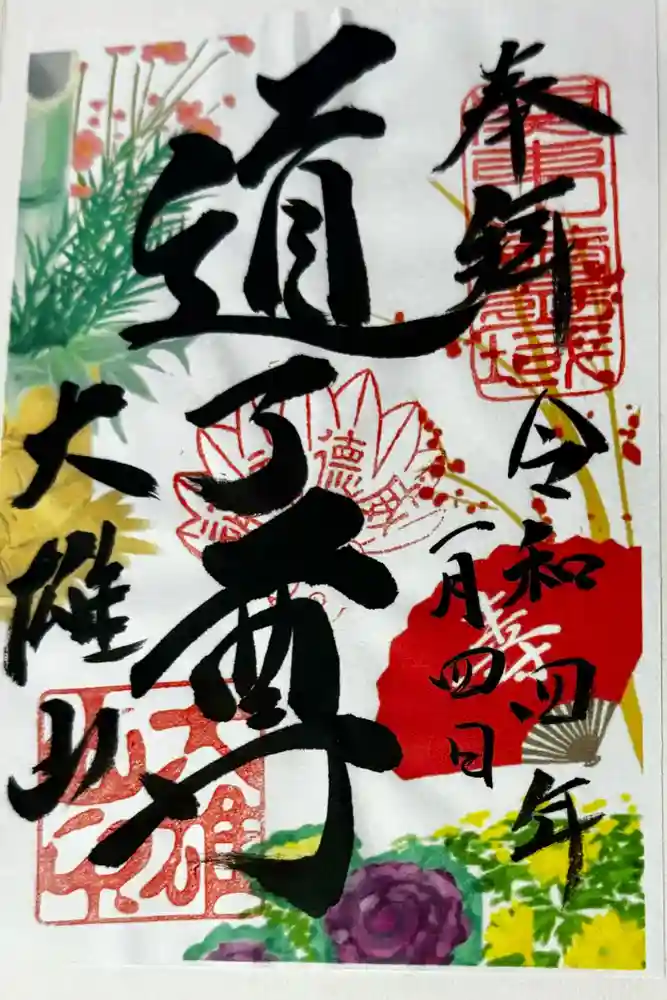 奉拝
令和四年
一月四日
道了尊
大雄山
德
寿